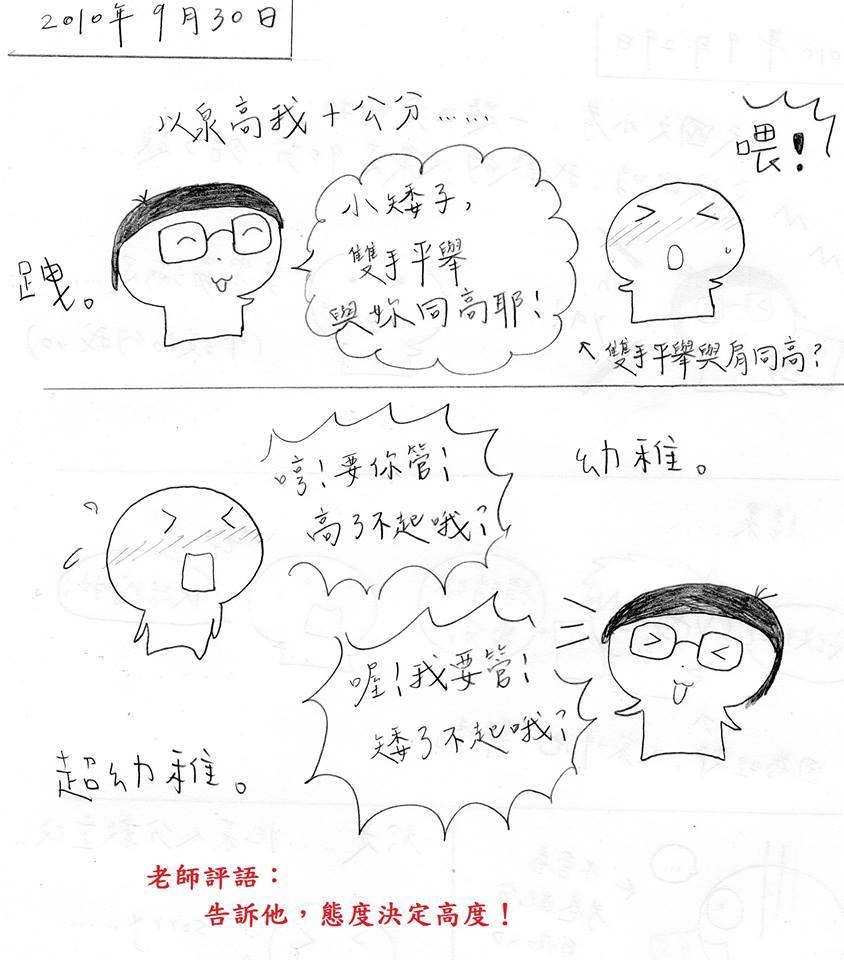 2010年9月30日
以泉高我十公分……
喂！
小矮子，
雙手平舉
與妳同高耶！
跩。
↖雙手平舉與肩同高？
哼！要你管！
高了不起哦？
幼稚。
喔！我要管！
矮了不起哦？
超幼稚。
老師評語：
告訴他，態度決定高度！